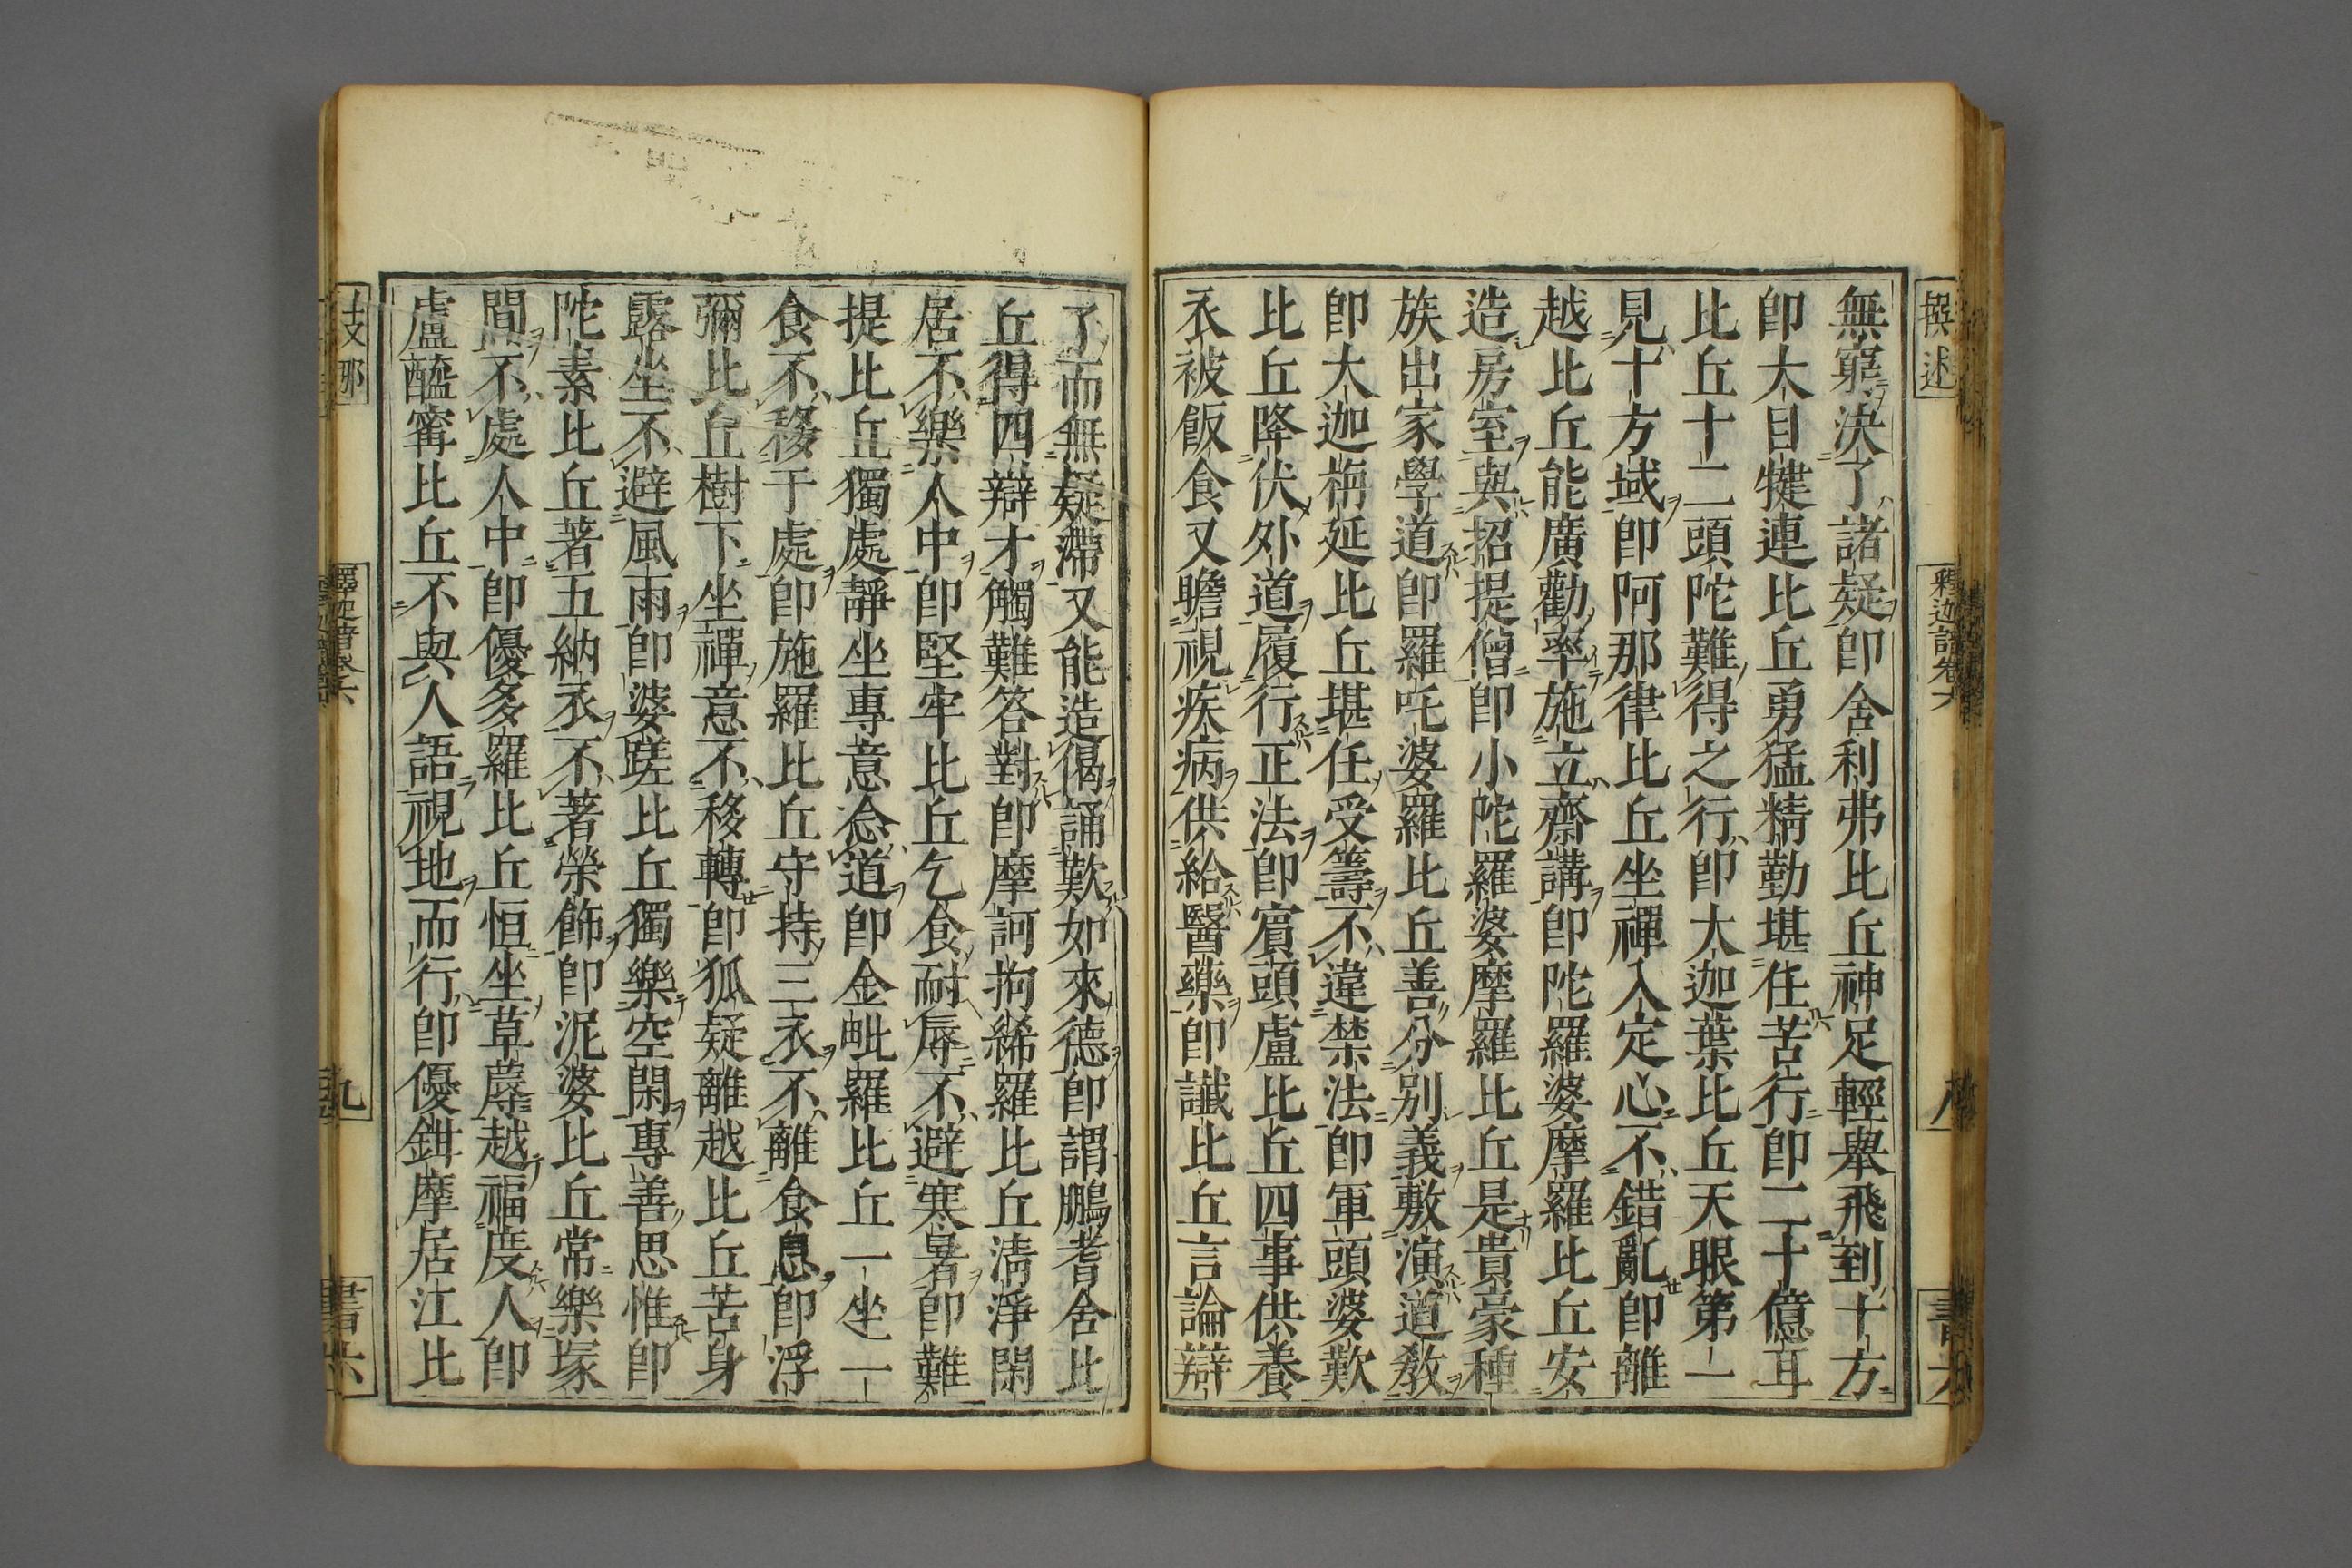 撰述
釋迦譜卷六
八
書六
無窮決了諸疑即舍利弗比丘神足輕舉飛到十方
即大目犍連比丘勇猛精勤堪任苦行即二十億耳
比丘十二頭陀難得之行即大迦葉比丘天眼第一
見十方域即阿那律比丘坐禪入定心不錯亂即離
越比丘能廣勸率施立齋講即陀羅婆摩羅比丘安
造房室與招提僧即小陀羅婆摩羅比丘是貴豪種
族出家學道即羅吒婆羅比丘善分別義敷演道教
即大迦栴延比丘堪任受籌不違禁法即軍頭婆歎
比丘降伏外道履行正法即賓頭盧比丘四事供養
衣被飯食又瞻視疾病供給醫藥即讖比丘言論辯
了而無疑滯又能造偈誦歎如來德即謂鵬耆舍比
丘得四辯才觸難答對即摩訶拘絺羅比丘清淨閑
居不樂人中即堅牢比丘乞食耐辱不避寒暑即難
提比丘獨處靜坐專意念道即金毗羅比丘一坐一
食不移于處即施羅比丘守持三衣不離食息即浮
彌比丘樹下坐禪意不移轉即狐疑離越比丘苦身
露坐不避風雨即婆蹉比丘獨樂空閑專善思惟即
陀素比丘著五納衣不著榮飾即泥婆比丘常樂塚
間不處人中即優多羅比丘恒坐草蓐越福度人即
盧醯甯比丘不與人語視地而行即優鉗摩居江比
支那
釋迦譜卷六
九
書六